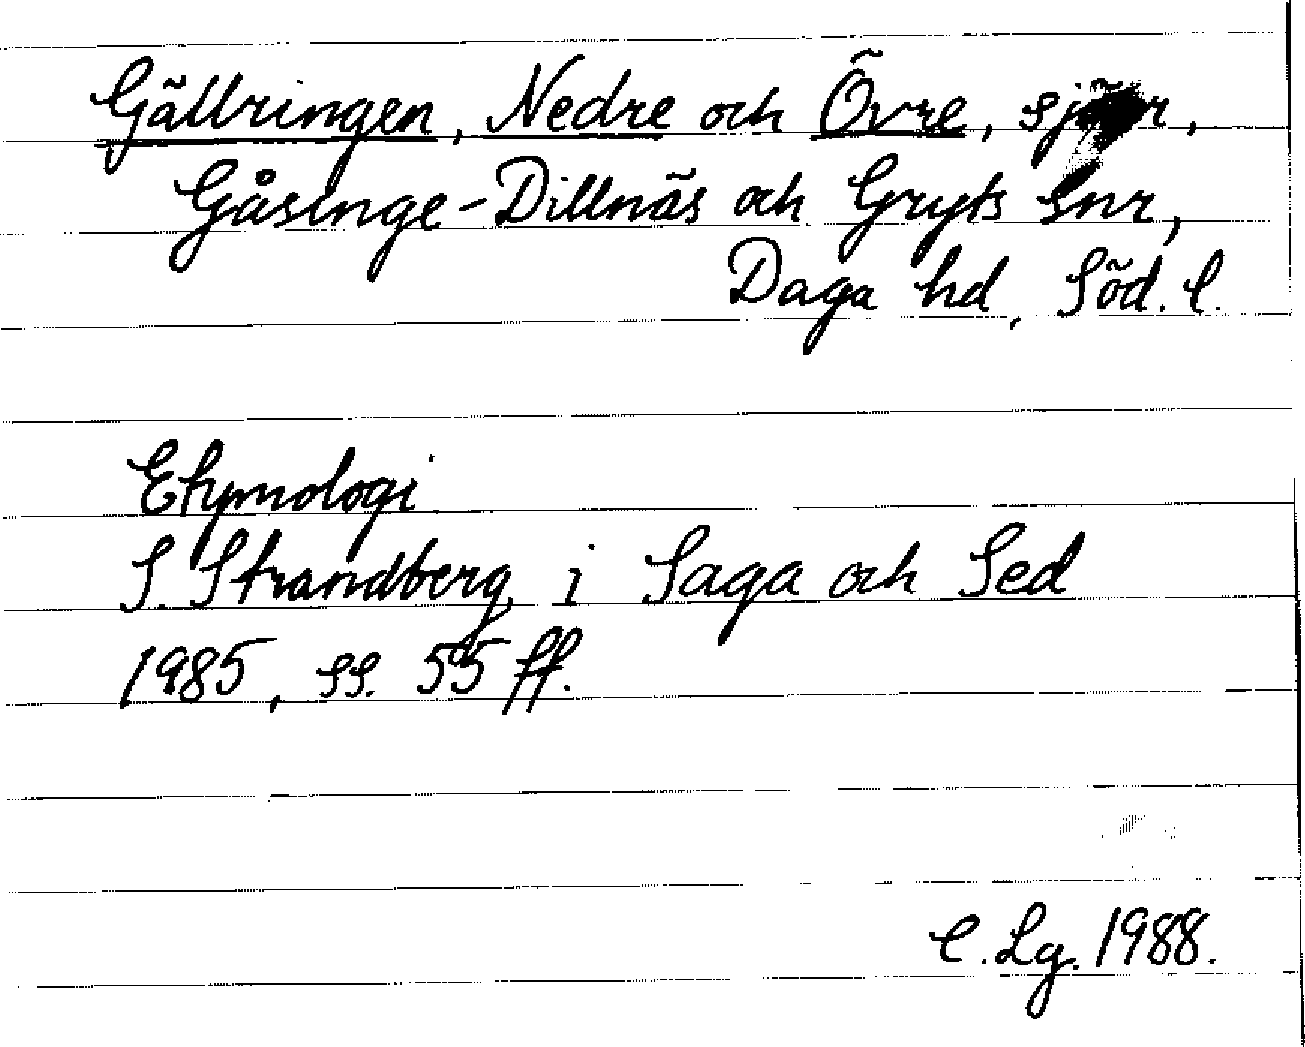 Gällringen, Nedre och Övre, sjöar,
Gåsinge-Dillnäs och Gryts snr,
Daga hd, Söd. l.
Etymologi
S. Strandberg i Saga och Sed
1985, ss. 55 ff.
C. Lg. 1988.